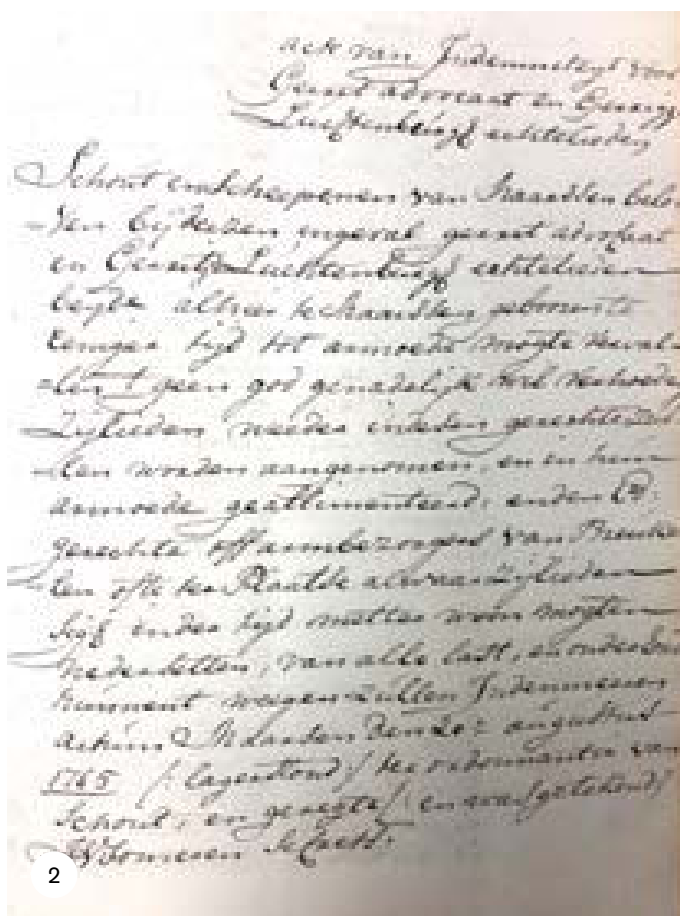 acte van Indemniteyt voor
Gerret advocaat en Gerritje
Luchtenburgh echtelieden
Schout en scheepenen van Maarssen belo-
-ven bij deesen ingeval gerret advocaat
en Gerritje Luchtenburgh echtelieden
beyde alhier te Maarssen gebooren te
eeniger tijd tot armoede mogte verval-
-len t geen god genadelijk wil verhoede
zijlieden weeder in deesen gerechte
-len worden aangenomen, en in hun
armoede gealimenteerd, ende den Ed:
gerechte off armbezorgers van Breuke-
-len ofte ter Plaatse alwaar zijlieden
sig in der tijd metter woon mogten
nedersetten, van alle last, en onder
houd weegen zullen Indemneeren
actum Maarssen den 20e augustus
1765 /: lagerstond :/ ter ordonnantie van
Schout, en geregte / en was getekend /
2